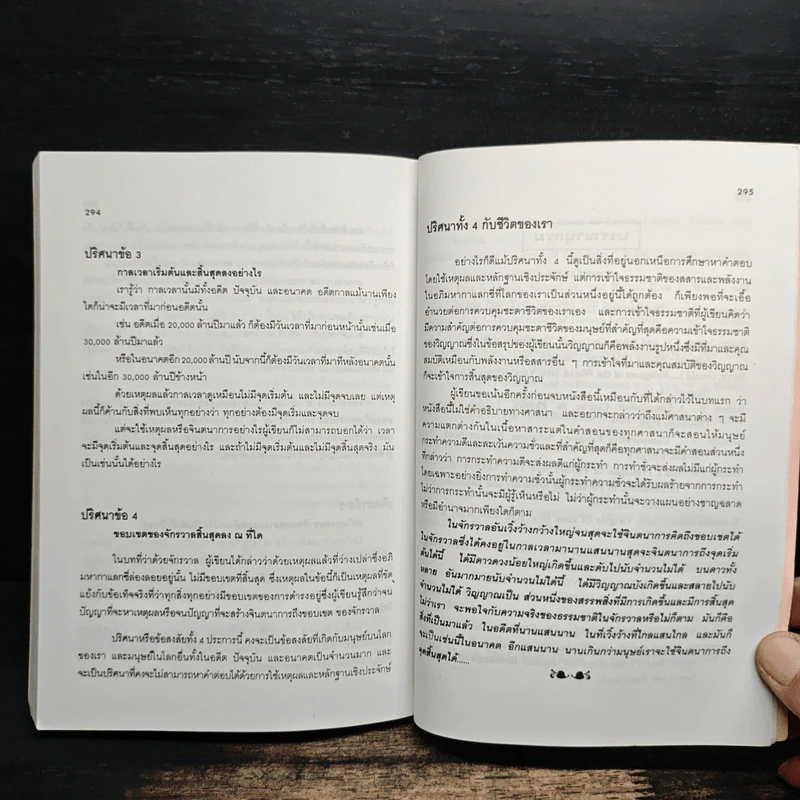 294
ปริศนาข้อ 3
กาลเวลาเริ่มต้นและสิ้นสุดลงอย่างไร
เรารู้ว่า กาลเวลานั้นมีทั้งอดีต ปัจจุบัน และอนาคต อดีตกาลแม้นานเพียง
ใดก็น่าจะมีเวลาที่มาก่อนอดีตนั้น
เช่น อดีตเมื่อ 20,000 ล้านปีมาแล้ว ก็ต้องมีวันเวลาที่มาก่อนหน้านั้นเช่นเมื่อ
30,000 ล้านปีมาแล้ว
หรือในอนาคตอีก 20,000 ล้านปี นับจากนี้ก็ต้องมีวันเวลาที่มาทีหลังอนาคตนั้น
เช่นในอีก 30,000 ล้านปีข้างหน้า
ด้วยเหตุผลแล้วกาลเวลาดูเหมือนไม่มีจุดเริ่มต้น และไม่มีจุดจบเลย แต่เหตุ
ผลนี้ก็ค้านกับสิ่งที่พบเห็นทุกอย่างว่า ทุกอย่างต้องมีจุดเริ่มและจุดจบ
แต่จะใช้เหตุผลหรือจินตนาการอย่างไรผู้เขียนก็ไม่สามารถบอกได้ว่า เวลา
จะมีจุดเริ่มต้นและจุดสิ้นสุดอย่างไร และถ้าไม่มีจุดเริ่มต้นและไม่มีสิ้นสุดจริง มัน
เป็นเช่นนั้นได้อย่างไร
ปริศนาข้อ 4
ขอบเขตของจักรวาลสิ้นสุดลง ณ ที่ใด
ในบทที่ว่าด้วยจักรวาล ผู้เขียนได้กล่าวว่าด้วยเหตุผลแล้วที่ว่างเปล่าซึ่งอภิ
มหากาแลกซี่ล่องลอยอยู่นั้น ไม่มีขอบเขตที่สิ้นสุด ซึ่งเหตุผลในข้อนี้ก็เป็นเหตุผลที่ขัด
แย้งกับข้อเท็จจริงที่ว่าทุกสิ่งทุกอย่างมีขอบเขตของการดำรงอยู่ซึ่งผู้เขียนรู้สึกว่าจน
ปัญญาที่จะหาเหตุผลหรือจนปัญญาที่จะสร้างจินตนาการถึงขอบเขต ของจักรวาล
ปริศนาหรือข้อสงสัยทั้ง 4 ประการนี้ คงจะเป็นข้อสงสัยที่เกิดกับมนุษย์บนโลก
ของเรา และมนุษย์ในโลกอื่นทั้งในอดีต ปัจจุบัน และอนาคตเป็นจำนวนมาก และ
จะเป็นปริศนาที่คงจะไม่สามารถหาคำตอบได้ด้วยการใช้เหตุผลและหลักฐานเชิงประจักษ์
295
ปริศนาทั้ง 4 กับชีวิตของเรา
อย่างไรก็ดีแม้ปริศนาทั้ง 4 นี้ดูเป็นสิ่งที่อยู่นอกเหนือการศึกษาหาคำตอบ
โดยใช้เหตุผลและหลักฐานเชิงประจักษ์ แต่การเข้าใจธรรมชาติของสสารและพลังงาน
ในอภิมหากาแลกซี่ที่โลกของเราเป็นส่วนหนึ่งอยู่นี้ได้ถูกต้อง ก็เพียงพอที่จะเอื้อ
อำนวยต่อการควบคุมชะตาชีวิตของเราเอง และการเข้าใจธรรมชาติที่ผู้เขียนคิดว่า
มีความสำคัญต่อการควบคุมชะตาชีวิตของมนุษย์ที่สำคัญที่สุดคือความเข้าใจธรรมชาติ
ของวิญญาณซึ่งในข้อสรุปของผู้เขียนนั้นวิญญาณก็คือพลังงานรูปหนึ่งซึ่งมีที่มาและคุณ
สมบัติเหมือนกับพลังงานหรือสสารอื่น ๆ การเข้าใจที่มาและคุณสมบัติของวิญญาณ
ก็จะเข้าใจการสิ้นสุดของวิญญาณ
ผู้เขียนขอเน้นอีกครั้งก่อนจบหนังสือนี้เหมือนกับที่ได้กล่าวไว้ในบทแรก ว่า
หนังสือนี้ไม่ใช่คำอธิบายทางศาสนา และอยากจะกล่าวว่าถึงแม้ศาสนาต่าง ๆ จะมี
ความแตกต่างกันในเนื้อหาสาระแต่ในคำสอนของทุกศาสนาก็จะสอนให้มนุษย์
กระทำความดีและละเว้นความชั่วและที่สำคัญที่สุดก็คือทุกศาสนาจะมีคำสอนส่วนหนึ่ง
ที่กล่าวว่า การกระทำความดีจะส่งผลดีแก่ผู้กระทำ การทำชั่วจะส่งผลไม่ดีแก่ผู้กระทำ
โดยเฉพาะอย่างยิ่งการทำความชั่วนั้นผู้กระทำความชั่วจะต้องได้รับผลร้ายจากการกระทำ
ไม่ว่าการกระทำนั้นจะมีผู้รู้เห็นหรือไม่ ไม่ว่าผู้กระทำนั้นจะวางแผนอย่างชาญฉลาด
หรือมีอำนาจมากเพียงใดก็ตาม
ในจักรวาลอันเวิ้งว้างกว้างใหญ่จนสุดจะใช้จินตนาการคิดถึงขอบเขตได้
ในจักรวาลซึ่งได้คงอยู่ในกาลเวลามานานแสนนานสุดจะจินตนาการถึงจุดเริ่ม
ต้นได้นี้ ได้มีดาวดวงน้อยใหญ่เกิดขึ้นและดับไปนับจำนวนไม่ได้ บนดาวทั้ง
หลาย อันมากมายนับจำนวนไม่ได้นี้ ได้มีวิญญาณบังเกิดขึ้นและสลายไปนับ
จำนวนไม่ได้ วิญญาณเป็น ส่วนหนึ่งของสรรพสิ่งที่มีการเกิดขึ้นและมีการสิ้นสุด
ไม่ว่าเรา จะพอใจกับความจริงของธรรมชาติในจักรวาลหรือไม่ก็ตาม มันก็คือ
สิ่งที่เป็นมาแล้ว ในอดีตที่นานแสนนาน ในที่เวิ้งว้างที่ไกลแสนไกล และมันก็
จะเป็นเช่นนี้ในอนาคต อีกแสนนาน นานเกินกว่ามนุษย์เราจะใช้จินตนาการถึง
จุดสิ้นสุดได้.....